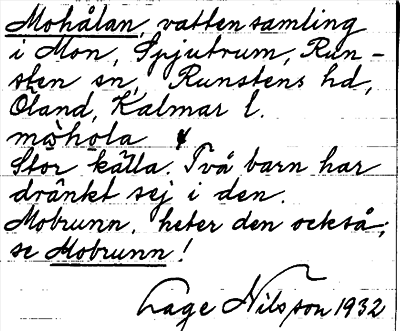 Mohålan, vattensamling
i Mon, Spjutrum, Run-
sten sn, Runstens hd,
Öland, Kalmar l.
mòhola
Stor källa. Två barn har
dränkt sej i den.
Mobrunn, heter den också,
se Mobrunn!
Lage Nilsson 1932